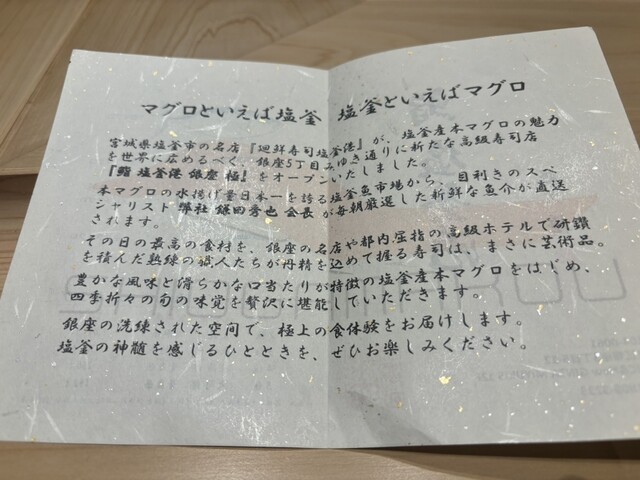 マグロといえば塩釜　塩釜といえばマグロ
宮城県塩釜市の名店『廻鮮寿司塩釜港』が、塩釜産本マグロの魅力
を世界に広めるべく、銀座5丁目みゆき通りに新たな高級寿司店
『鮨 塩釜港 銀座 極』をオープンいたしました。
本マグロの水揚げ量日本一を誇る塩釜魚市場から、目利きのスペ
シャリスト 弊社 鎌田秀也 会長 が毎朝厳選した新鮮な魚介が直送
されます。
その日の最高の食材を、銀座の名店や都内屈指の高級ホテルで研鑽
を積んだ熟練の職人たちが丹精を込めて握る寿司は、まさに芸術品。
豊かな風味と滑らかな口当たりが特徴の塩釜産本マグロをはじめ、
四季折々の旬の味覚を贅沢に堪能していただきます。
銀座の洗練された空間で、極上の食体験をお届けします。
塩釜の神髄を感じるひとときを、ぜひお楽しみください。